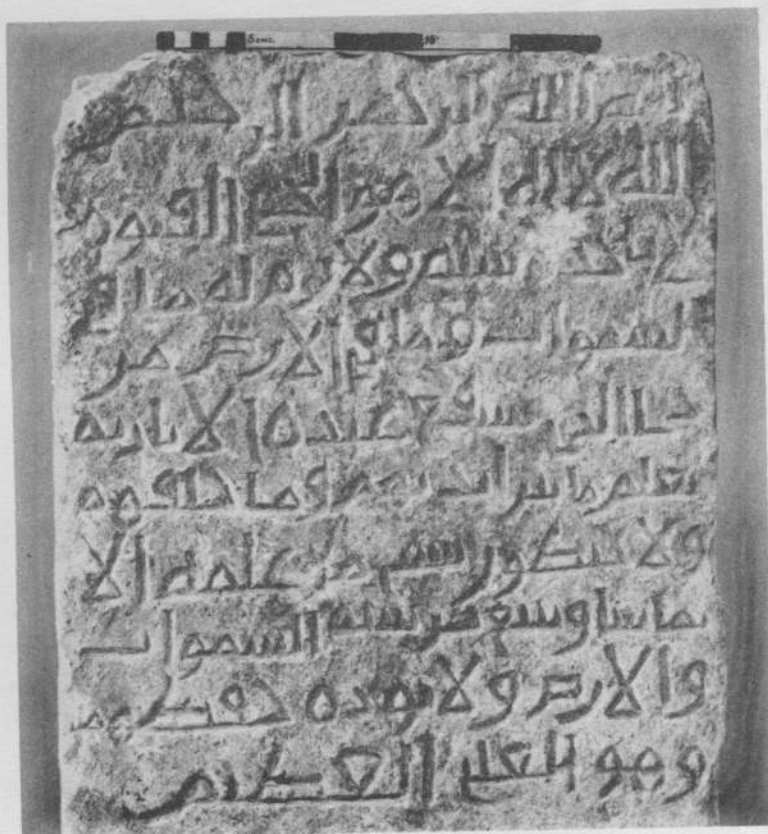 5cms. 10
بسم الله الرحمن الرحيم
الله لا اله الا هو الحي القيوم
لا تاخذه سنه ولا نوم له ما في
السموات وما في الارض من
ذا الذي يشفع عنده الا باذنه
يعلم ما بين ايديهم وما خلفهم
ولا يحيطون بشي من علمه الا
بما شا وسع كرسيه السموات
والارض ولا يوده حفظهما
وهو العلي العظيم